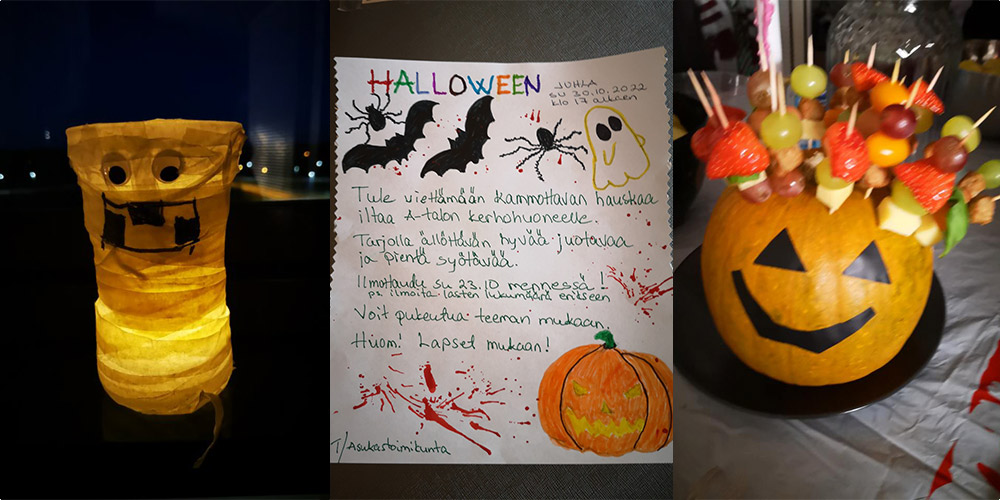 HALLOWEEN
JUHLA
SU 30.10.2022
klo 17 alkaen
Tule viettämään kammottavan hauskaa
iltaa A-talon kerhohuoneelle.
Tarjolla ällöttävän hyvää juotavaa
ja pientä syötävää.
Ilmottaudu su 23.10 mennessä!
ps. ilmoita lasten lukumäärä erikseen
Voit pukeutua teeman mukaan.
Huom! Lapset mukaan!
T/Asukastoimikunta